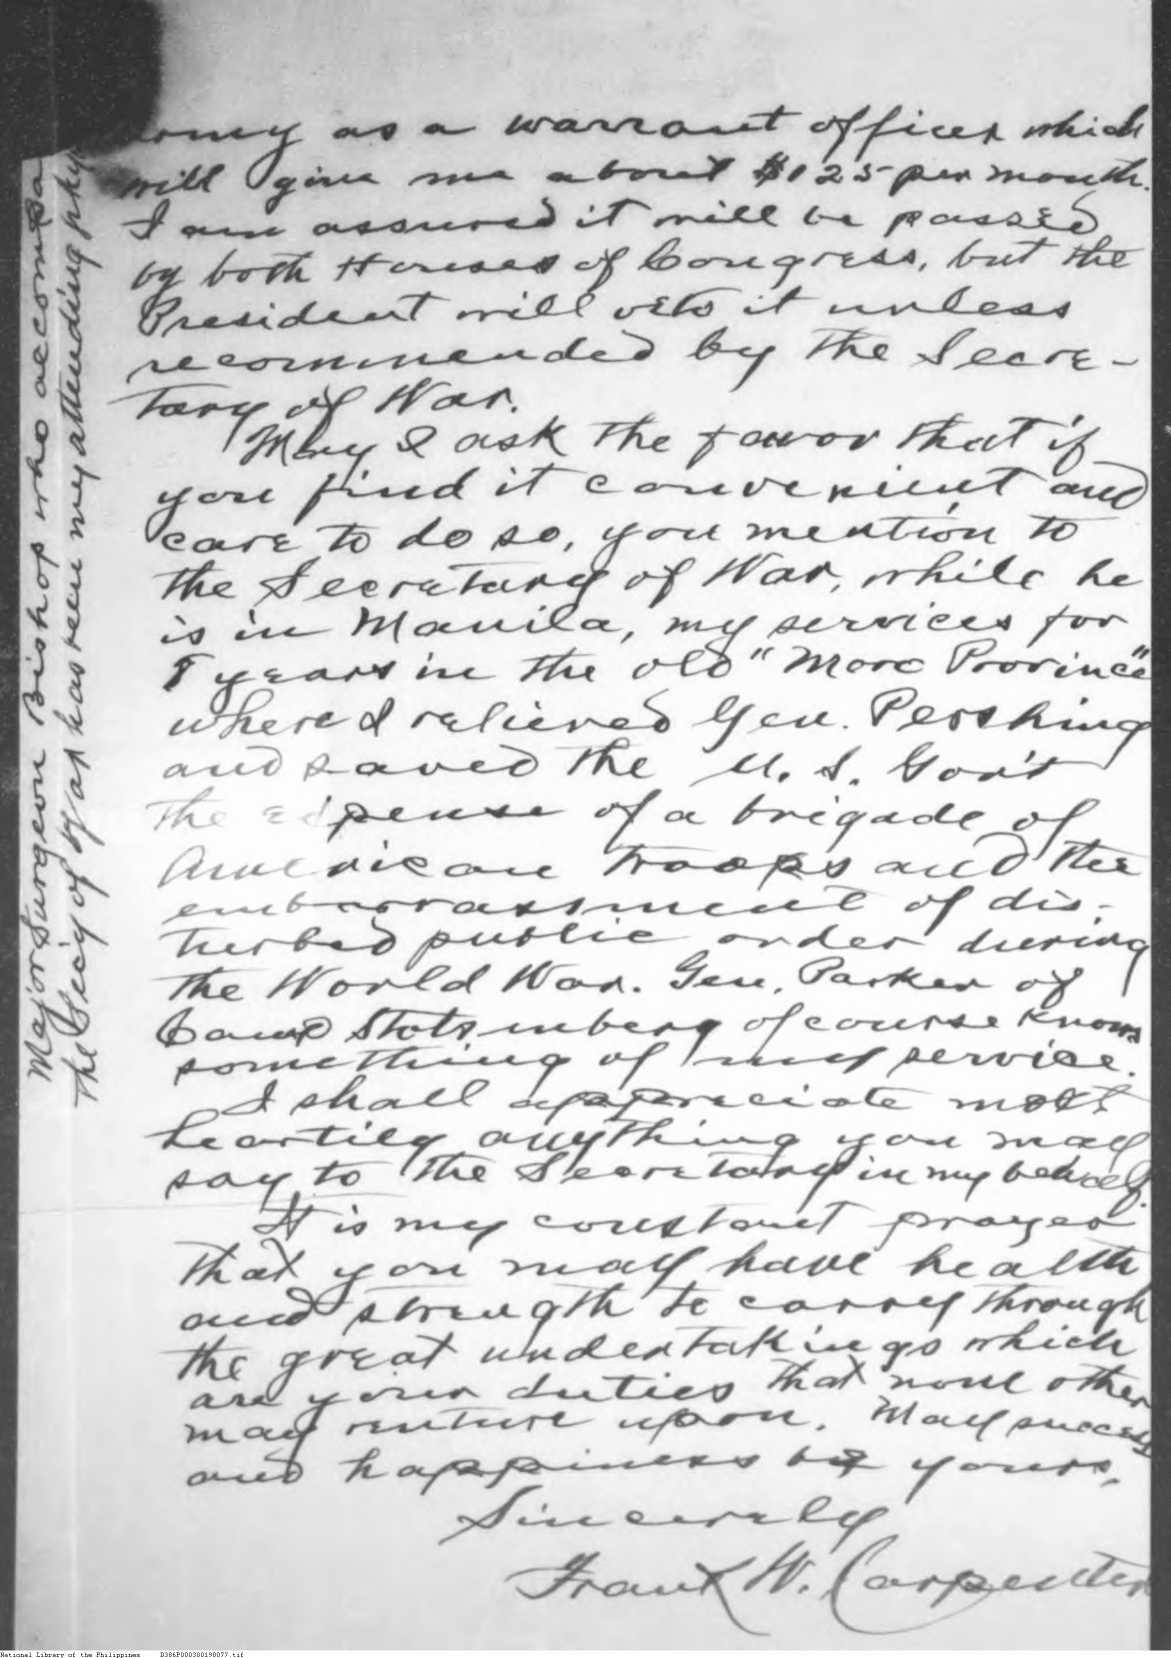 army as a warrant officer which
will give me about $125 per month.
I am assured it will be passed
by both Houses of Congress, but the
President will veto it unless
recommended by the Secre-
tary of War.
May I ask the favor that if
you find it convenient and
care to do so, you mention to
the Secretary of War, while he
is in Manila, my services for
years in the old "Moro Province"
where I relieved Gen. Pershing
and saved the U. S. Gov't
the expense of a brigade of
American troops and the
embarrassment of dis-
turbed public order during
the World War. Gen. Parker of
Camp Stotsenberg of course knows
something of my service.
I shall appreciate most
heartily anything you may
say to the Secretary in my behalf.
It is my constant prayer
that you may have health
and strength to carry through
the great undertakings which
are your duties that none other
may venture upon. May success
and happiness be yours.
Sincerely
Frank W. Carpenter
Major Surgeon Bishop who accompa
the Sec'y of War has been my attending phy
National Library of the Philippines D386P000300190077.tif